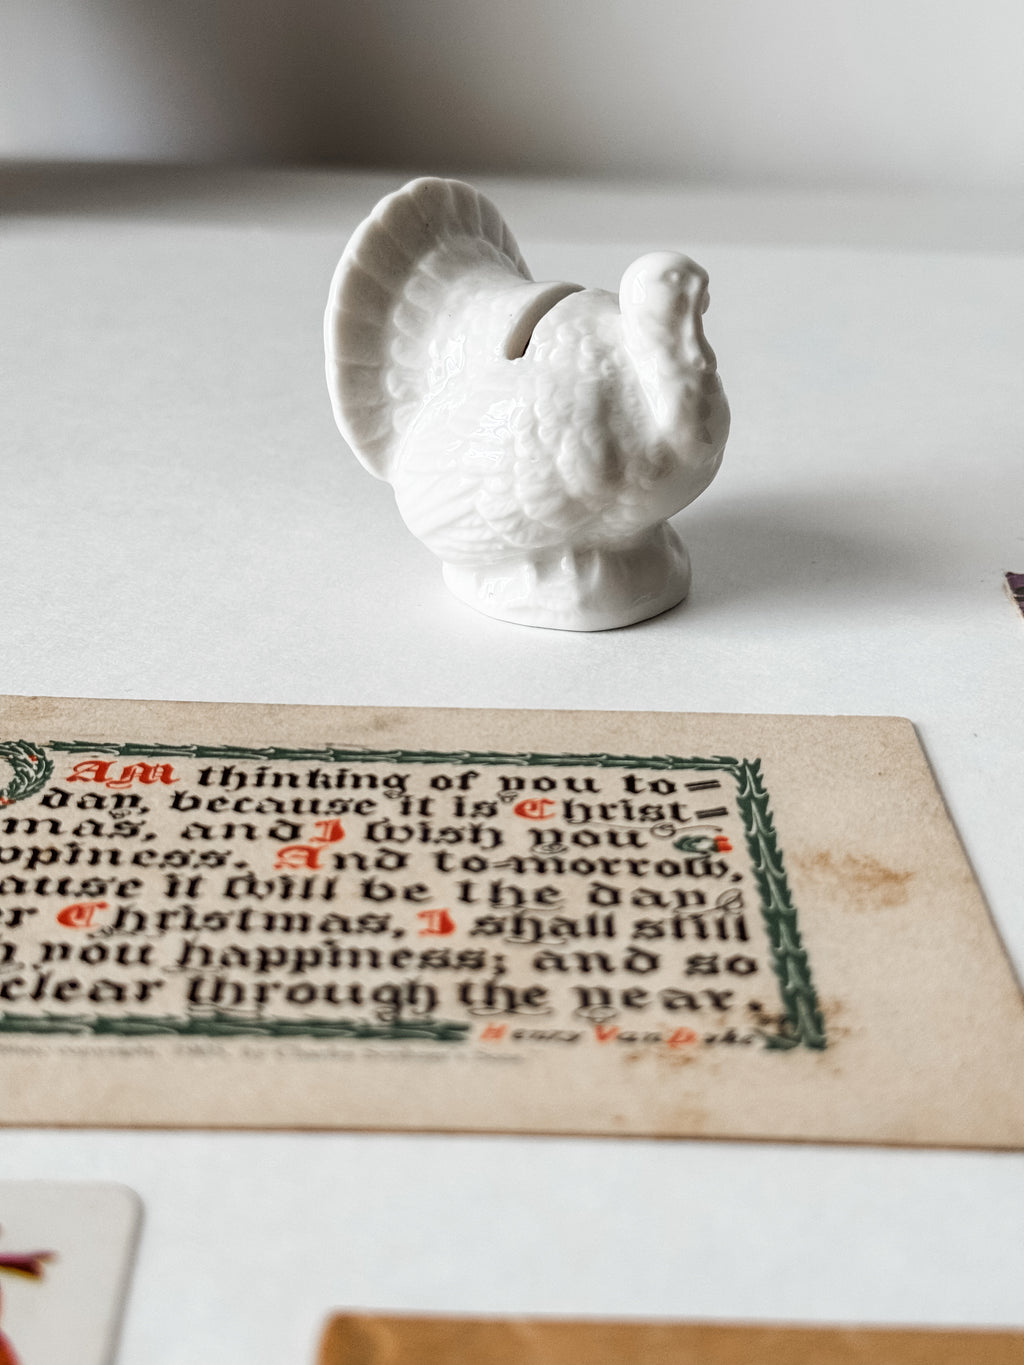 AM thinking of you to=
day, because it is Christ=
mas, and I wish you
ppiness. And to-morrow,
ause it will be the day
er Christmas, I shall still
h you happiness; and so
clear through the year.
Henry Van Dyke